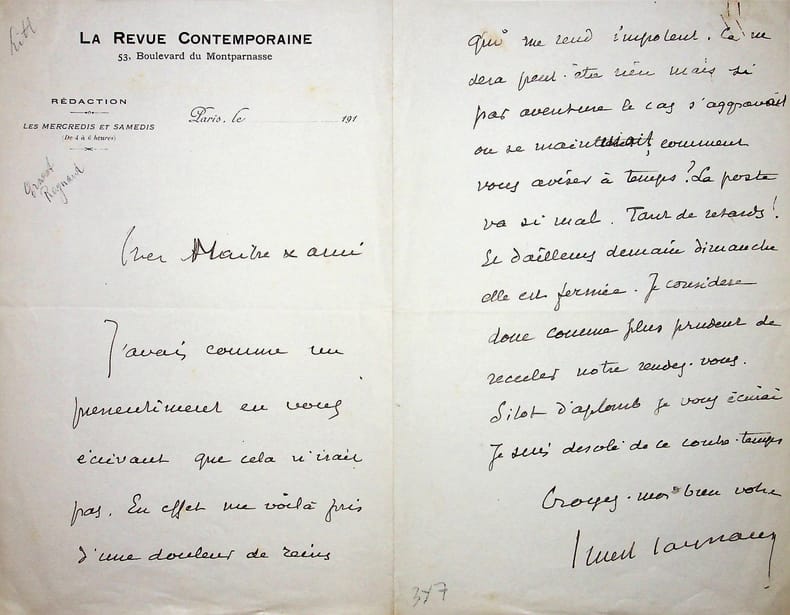 LA REVUE CONTEMPORAINE
53, Boulevard du Montparnasse
RÉDACTION
LES MERCREDIS ET SAMEDIS
(De 4 à 6 heures)
Paris, le 191
Ernest
Raynaud
Cher Maitre & ami
J'avais comme un
pressentiment en vous
écrivant que cela n'irait
pas. En effet me voilà pris
d'une douleur de reins
qui me rend impotent. Ça ne
sera peut-être rien mais si
par aventure le cas s'aggravait
ou se maintenait, comment
vous aviser à temps? La poste
va si mal. Tant de retards!
Et d'ailleurs demain dimanche
elle est fermée. Je considère
donc comme plus prudent de
reculer notre rendez-vous.
Sitot d'aplomb je vous écrirai
Je suis désolé de ce contre-temps
Croyez-moi bien votre
Ernest Raynaud
347